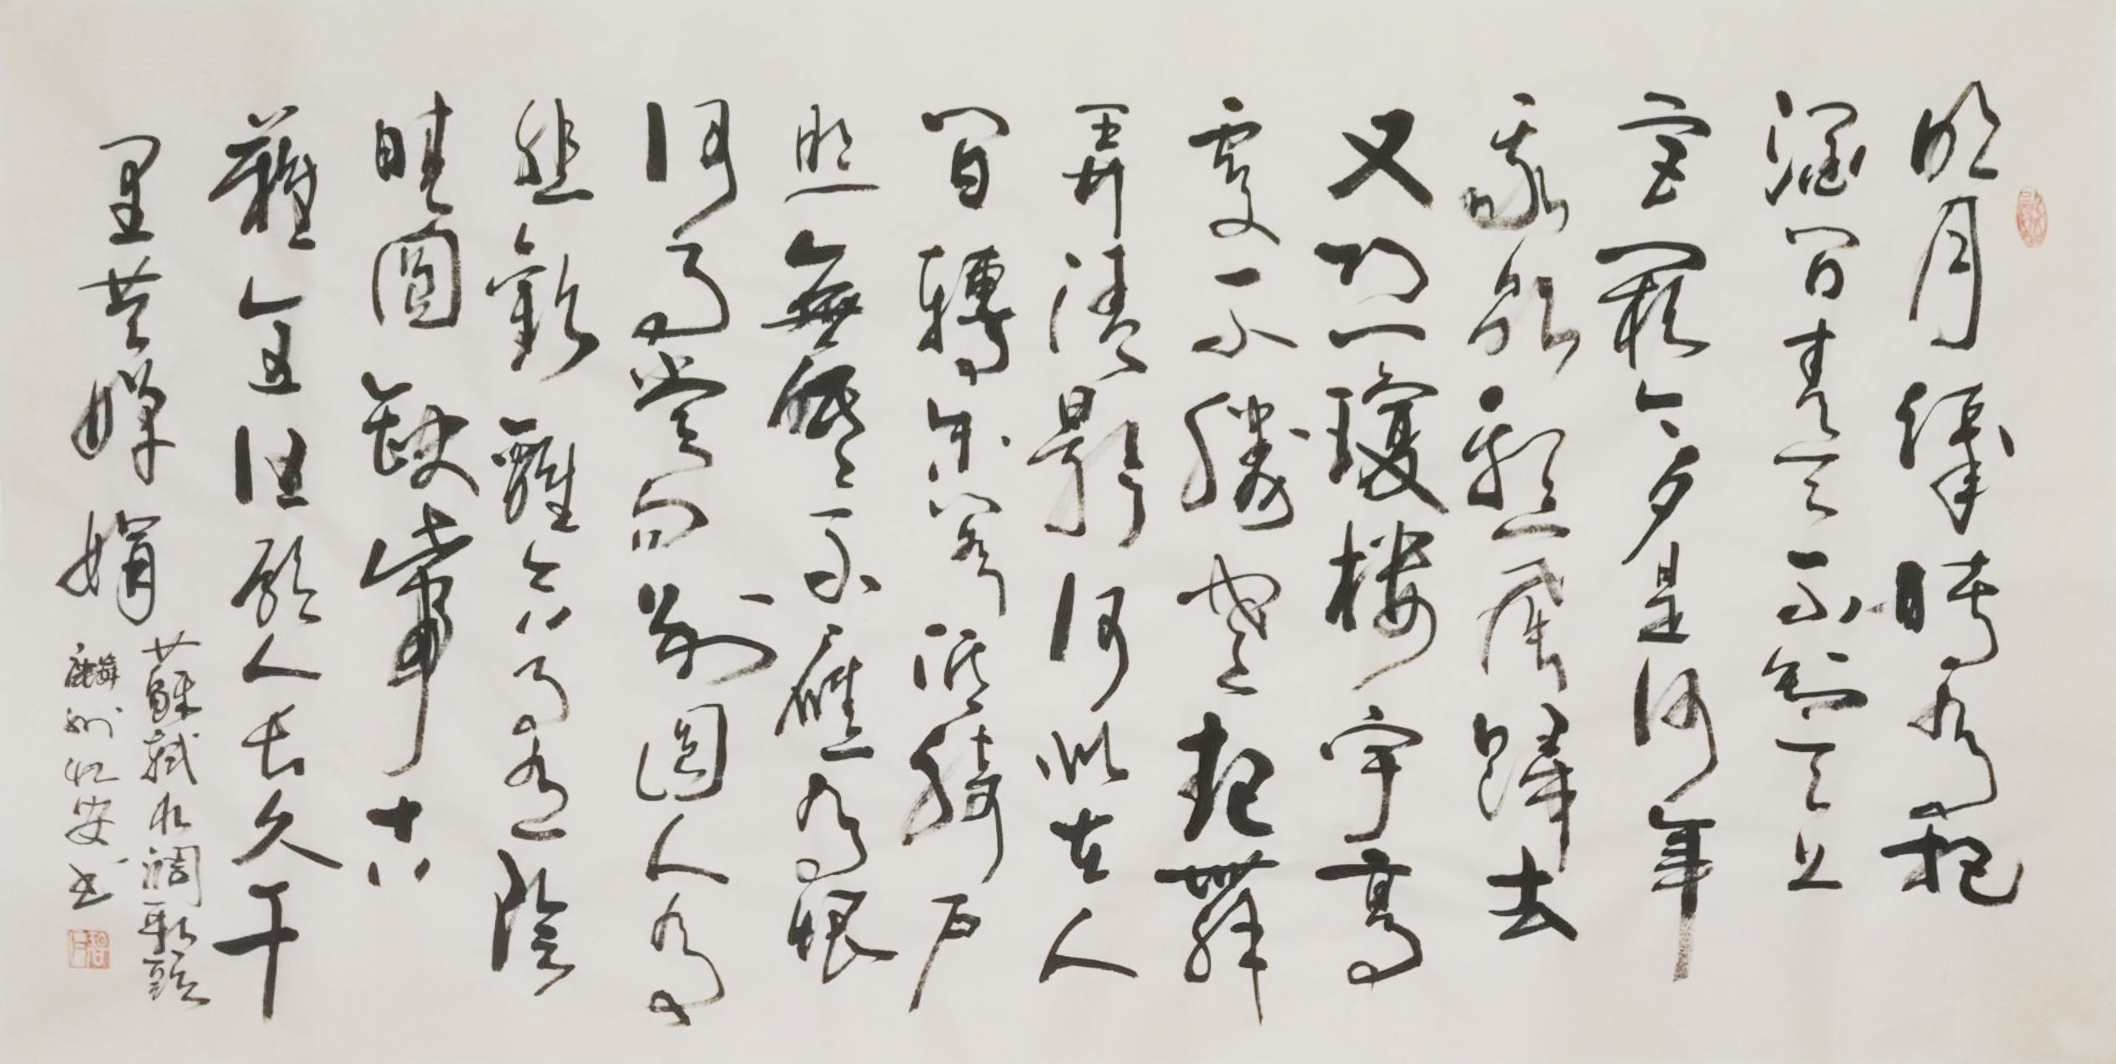 明月幾時有把
酒問青天不知天上
宫闕今夕是何年
我欲乘風歸去
又恐瓊樓宇高
處不勝寒起舞
弄清影何似在人
間轉朱閣低綺户
照無眠不應有恨
何事常向别圓人有
悲歡離合月有陰
晴圓缺此事古
難全但願人長久千
里共嬋娟
蘇軾水調歌頭
麟州 安书